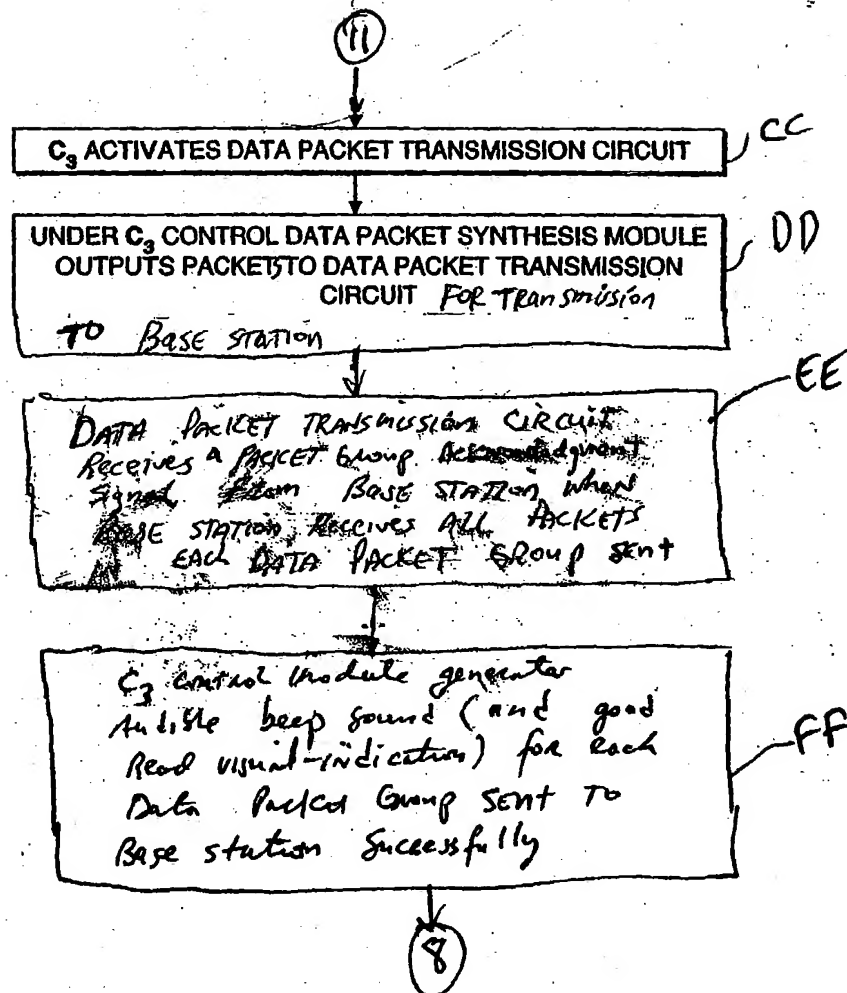 11
C₃ ACTIVATES DATA PACKET TRANSMISSION CIRCUIT
CC
UNDER C₃ CONTROL DATA PACKET SYNTHESIS MODULE
DD
OUTPUTS PACKETS TO DATA PACKET TRANSMISSION
CIRCUIT FOR Transmission
TO BASE STATION
EE
DATA PACKET TRANSMISSION CIRCUIT
Receives a PACKET Group Acknowledgment
Signal From BASE STATION when
BASE STATION Receives ALL PACKETS
EACH DATA PACKET GROUP Sent
C₃ control module generator
Audible beep sound (and good
Read visual-indication) for each
FF
Data Packet Group SENT TO
Base station Successfully
8